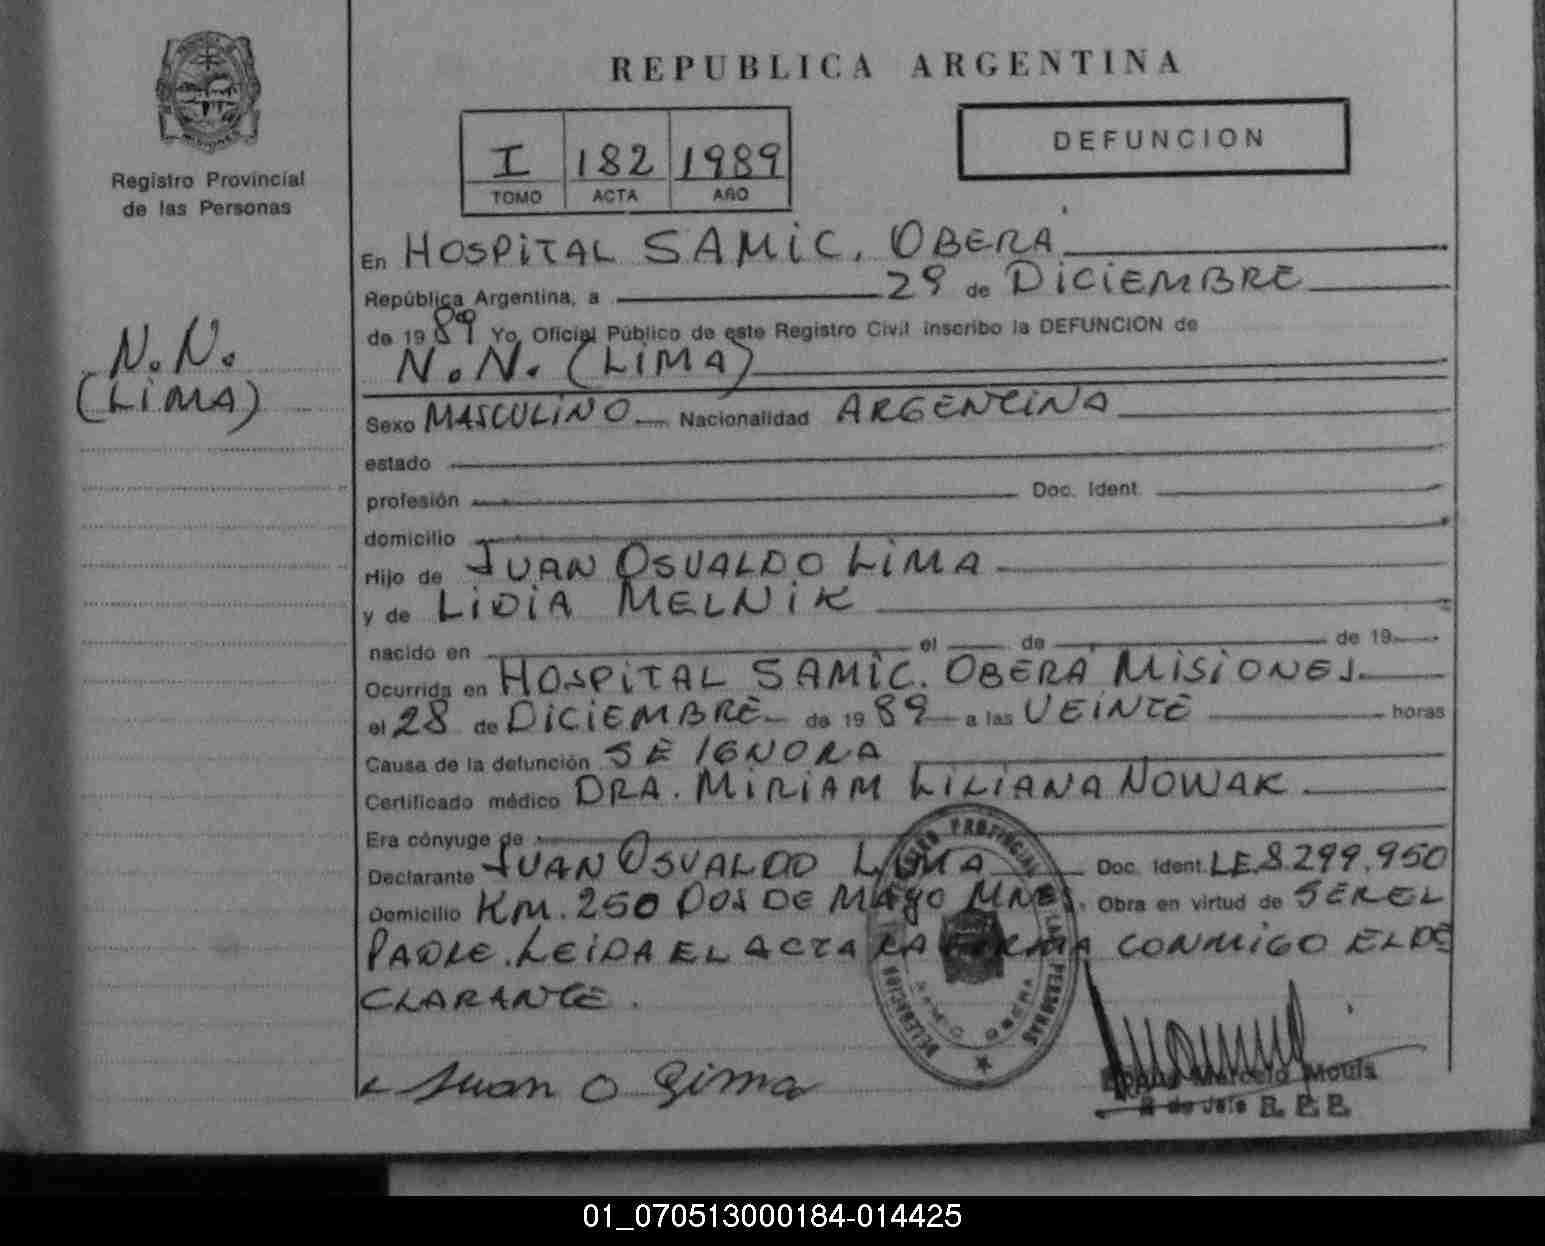 REPUBLICA ARGENTINA
Registro Provincial
de las Personas
I 182 1989
TOMO ACTA AÑO
DEFUNCION
N.N.
(LIMA)
En HOSPITAL SAMIC. OBERA
República Argentina, a 29 de DICIEMBRE
de 1989 Yo, Oficial Público de este Registro Civil inscribo la DEFUNCION de
N.N. (LIMA)
Sexo MASCULINO Nacionalidad ARGENTINA
estado
profesión Doc. Ident.
domicilio
Hijo de JUAN OSVALDO LIMA
y de LIDIA MELNIK
nacido en el de de 19
Ocurrida en HOSPITAL SAMIC. OBERÁ MISIONES.
el 28 de DICIEMBRE de 1989 a las VEINTE horas
Causa de la defunción SE IGNORA
Certificado médico DRA. MIRIAM LILIANA NOWAK
Era cónyuge de
Declarante JUAN OSVALDO LIMA Doc. Ident. LE.8.299.950
Domicilio KM. 250 DOS DE MAYO MNES. Obra en virtud de SER EL
PADRE. LEIDA EL ACTA LA FIRMA CONMIGO EL DE
CLARANTE.
Juan O Lima
Marcelo
de Jefe R. P. P.
01_070513000184-014425